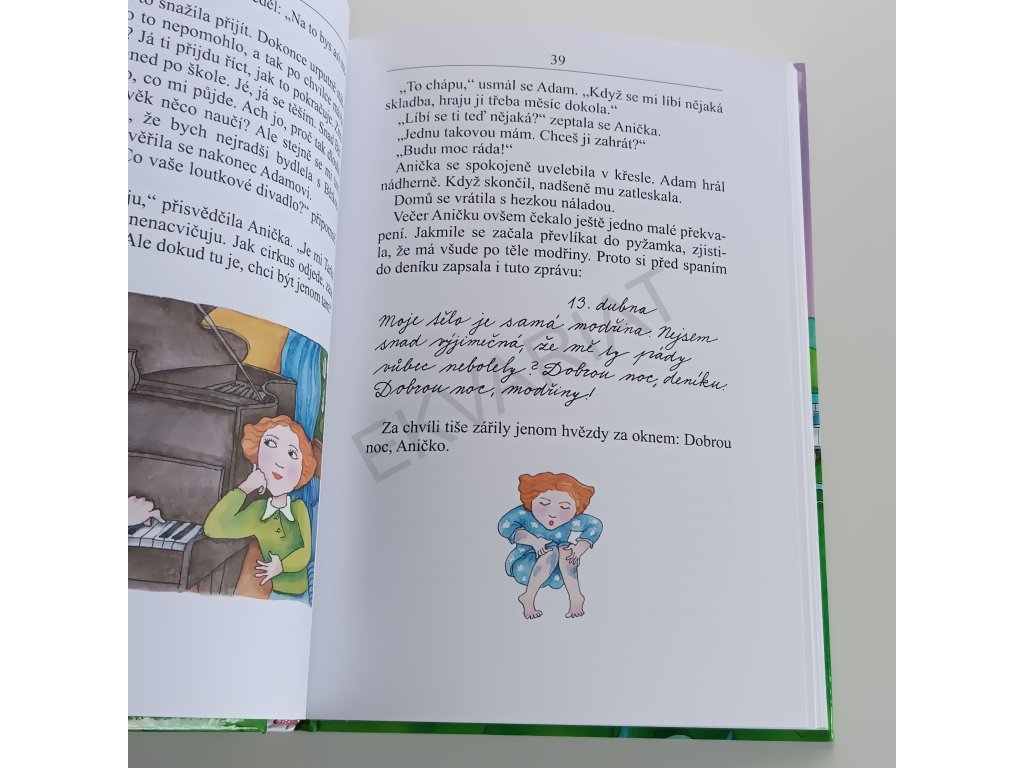 děl: „Na to bys asi
to snažila přijít. Dokonce urputně
to nepomohlo, a tak po chvilce
? Já ti přijdu říct, jak to pokračuje.
ned po škole. Jé, já se těším. Snad
o, co mi půjde. Ach jo, proč tak
věk něco naučí? Ale stejně se mi
, že bych nejradši bydlela s
věřila se nakonec Adamovi.
Co vaše loutkové divadlo?“
ju,“ přisvědčila Anička. „Je mi
nenacvičuju. Jak cirkus odjede,
Ale dokud tu je, chci být jenom tam
39
„To chápu,“ usmál se Adam. „Když se mi líbí nějaká
skladba, hraju ji třeba měsíc dokola.“
„Líbí se ti teď nějaká?“ zeptala se Anička.
„Jednu takovou mám. Chceš ji zahrát?“
„Budu moc ráda!“
Anička se spokojeně uvelebila v křesle. Adam hrál
nádherně. Když skončil, nadšeně mu zatleskala.
Domů se vrátila s hezkou náladou.
Večer Aničku ovšem čekalo ještě jedno malé překva-
pení. Jakmile se začala převlíkat do pyžamka, zjisti-
la, že má všude po těle modřiny. Proto si před spaním
do deníku zapsala i tuto zprávu:
13. dubna
Moje tělo je samá modřina. Nejsem
snad výjimečná, že mě ty pády
vůbec nebolely? Dobrou noc, deníku.
Dobrou noc, modřiny!
Za chvíli tiše zářily jenom hvězdy za oknem: Dobrou
noc, Aničko.
EKVARIAT